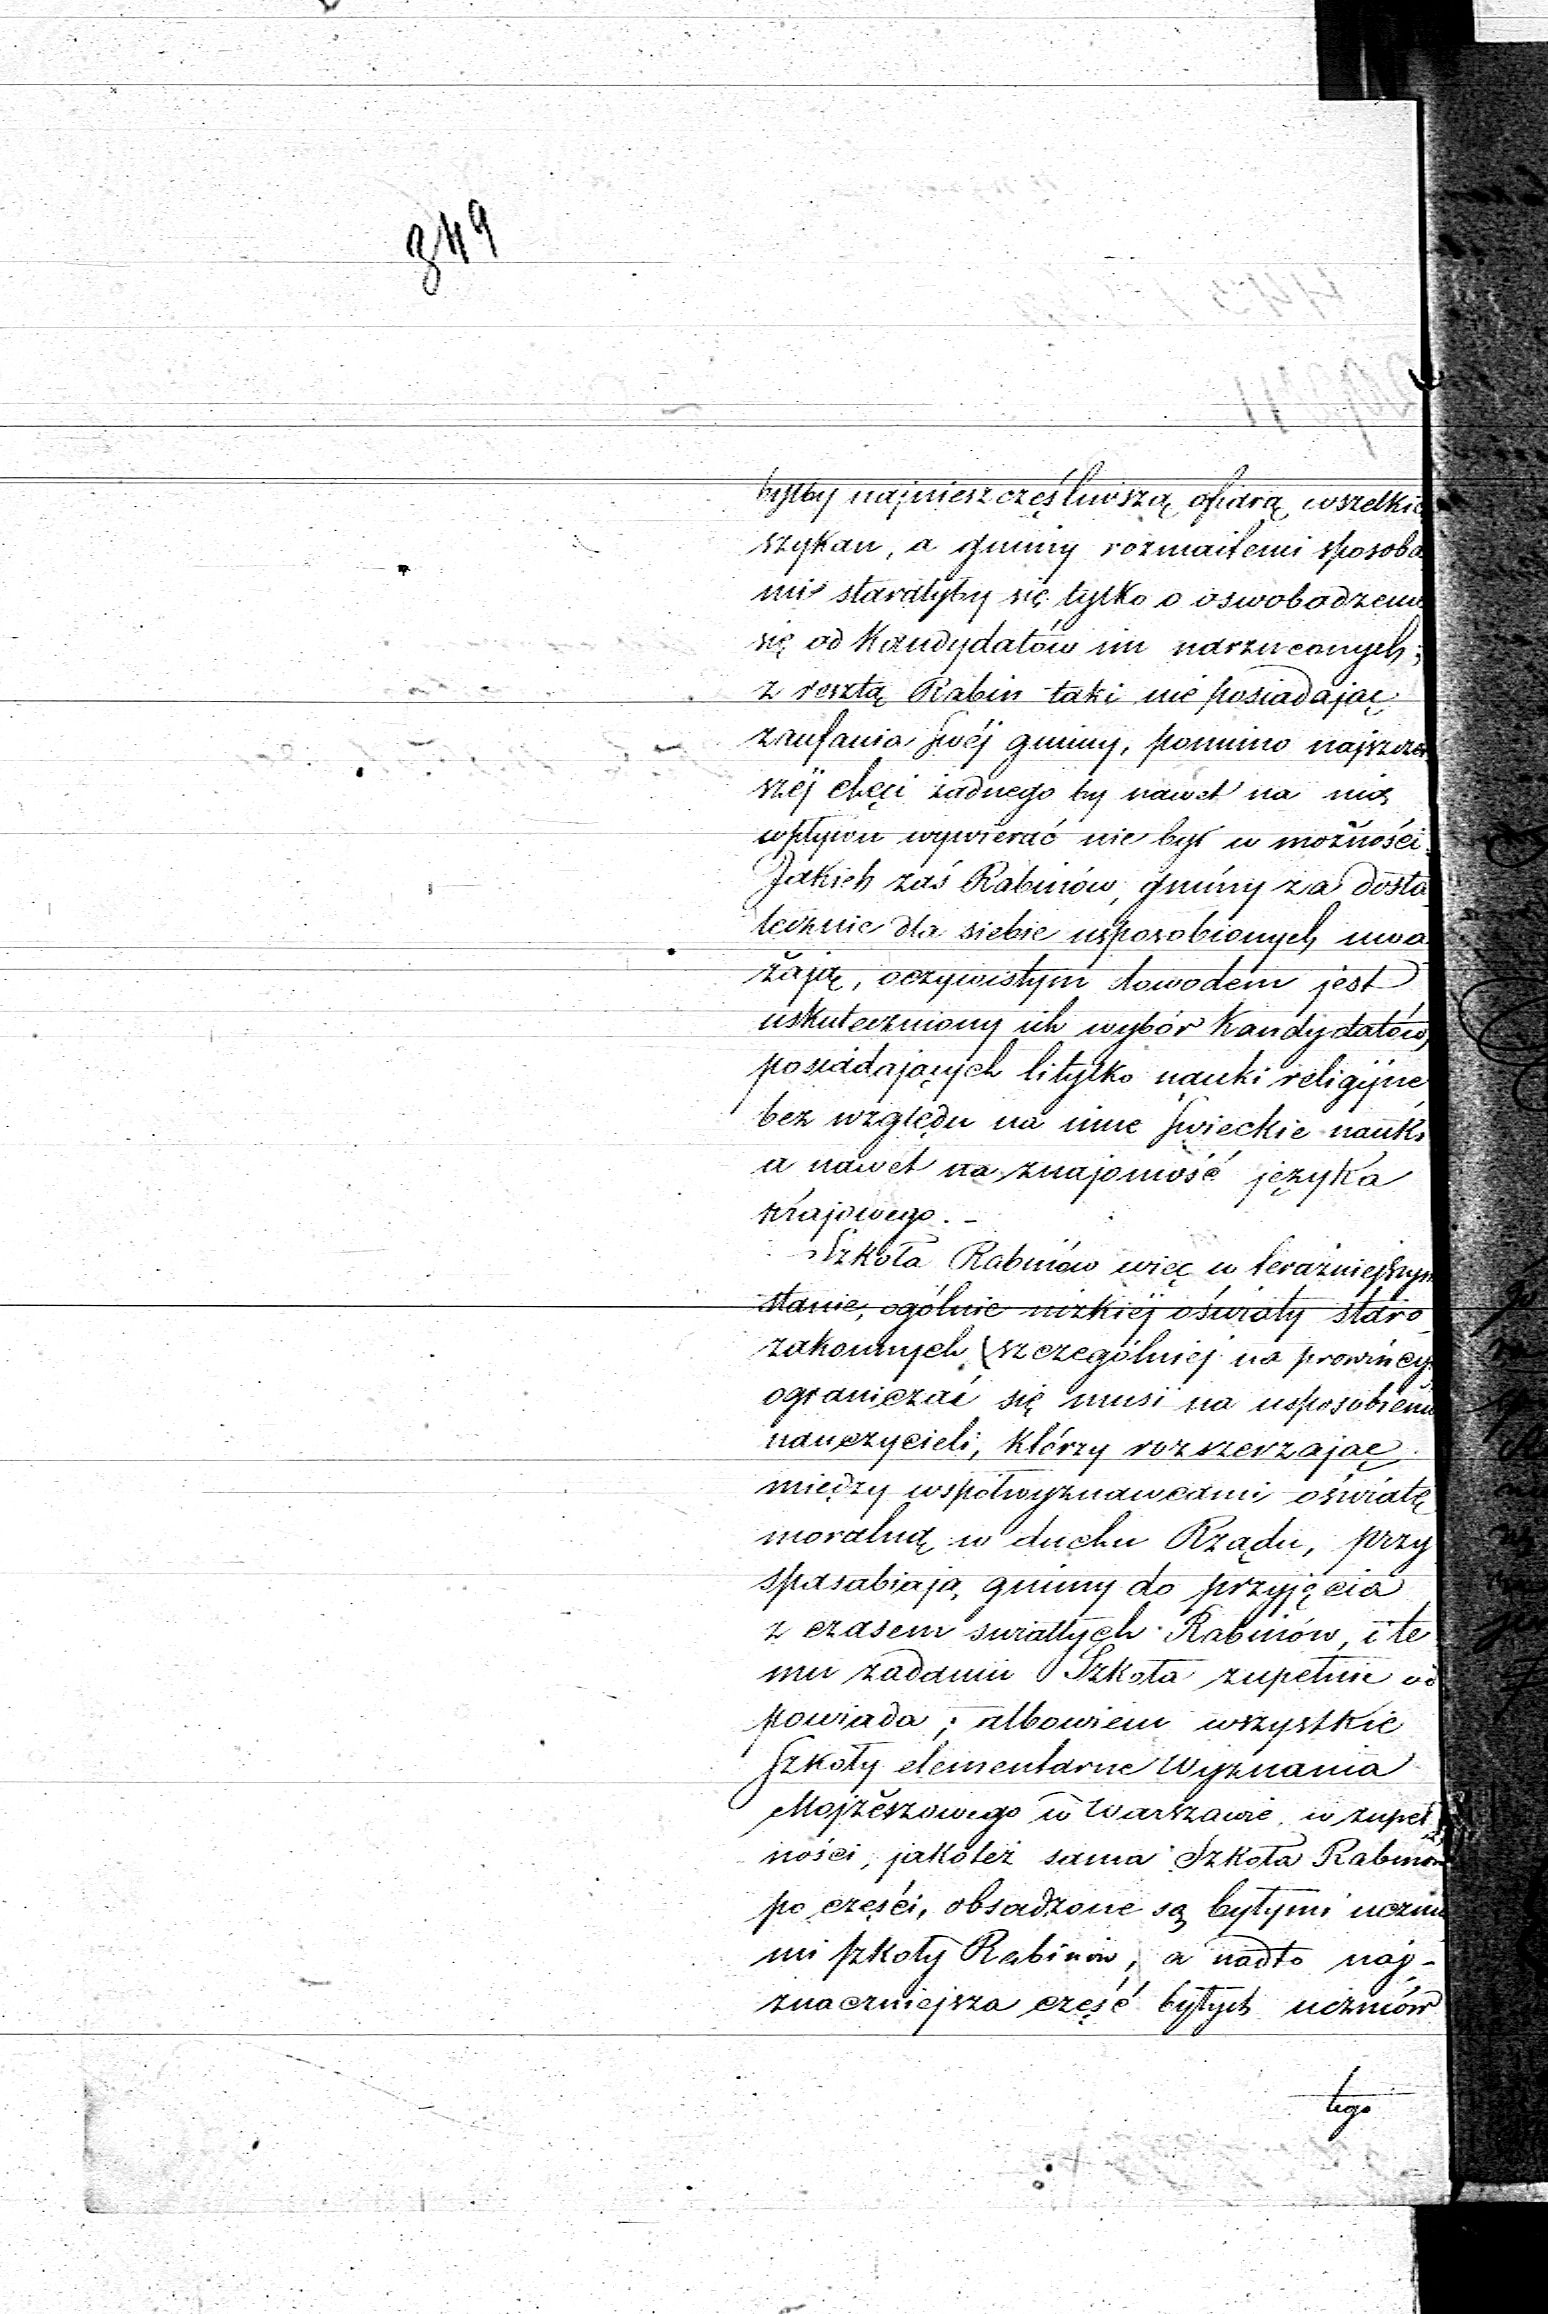 349
byłby najnieszczęśliwszą ofiarą wszelkic
szykan, a gminy rozmaitemi sposoba
mi starałyby się tylko o oswobodzeniu
się od Kandydatów im narzuconych;
z resztą Rabin taki nie posiadając
zaufania swéj gminy, pomimo najszczer
széj chęci żadnego by nawet na nią
wpływu wywierać nie był w możności.
Jakich zaś Rabinów, gminy za dosta
tecznie dla siebie usposobionych uwa
żają, oczywistym dowodem jest
uskuteczniony ich wybór Kandydatów,
posiadających li tylko nauki religijne
bez względu na inne świeckie nauki
a nawet na znajomość języka
krajowego. –
Szkoła Rabinów więc w teraźniejszym
stanie, ogólnie nizkiéj oświaty staro
zakonnych (szczególniej na prowincyi
ograniczać się musi na usposobieniu
nauczycieli, którzy rozszerzając
między współwyznawcami oświatę
moralną w duchu Rządu, przy
sposabiają gminy do przyjęcia
z czasem światłych Rabinów, i te
mu zadaniu Szkoła zupełnie od
powiada; albowiem wszystkie
szkoły elementarne Wyznania
Mojżeszowego w Warszawie w zupeł
ności, jakoteż sama Szkoła Rabinów
po części, obsadzone są byłymi ucznia
mi szkoły Rabinów, a nadto naj-
znaczniejsza część byłych uczniów
tego